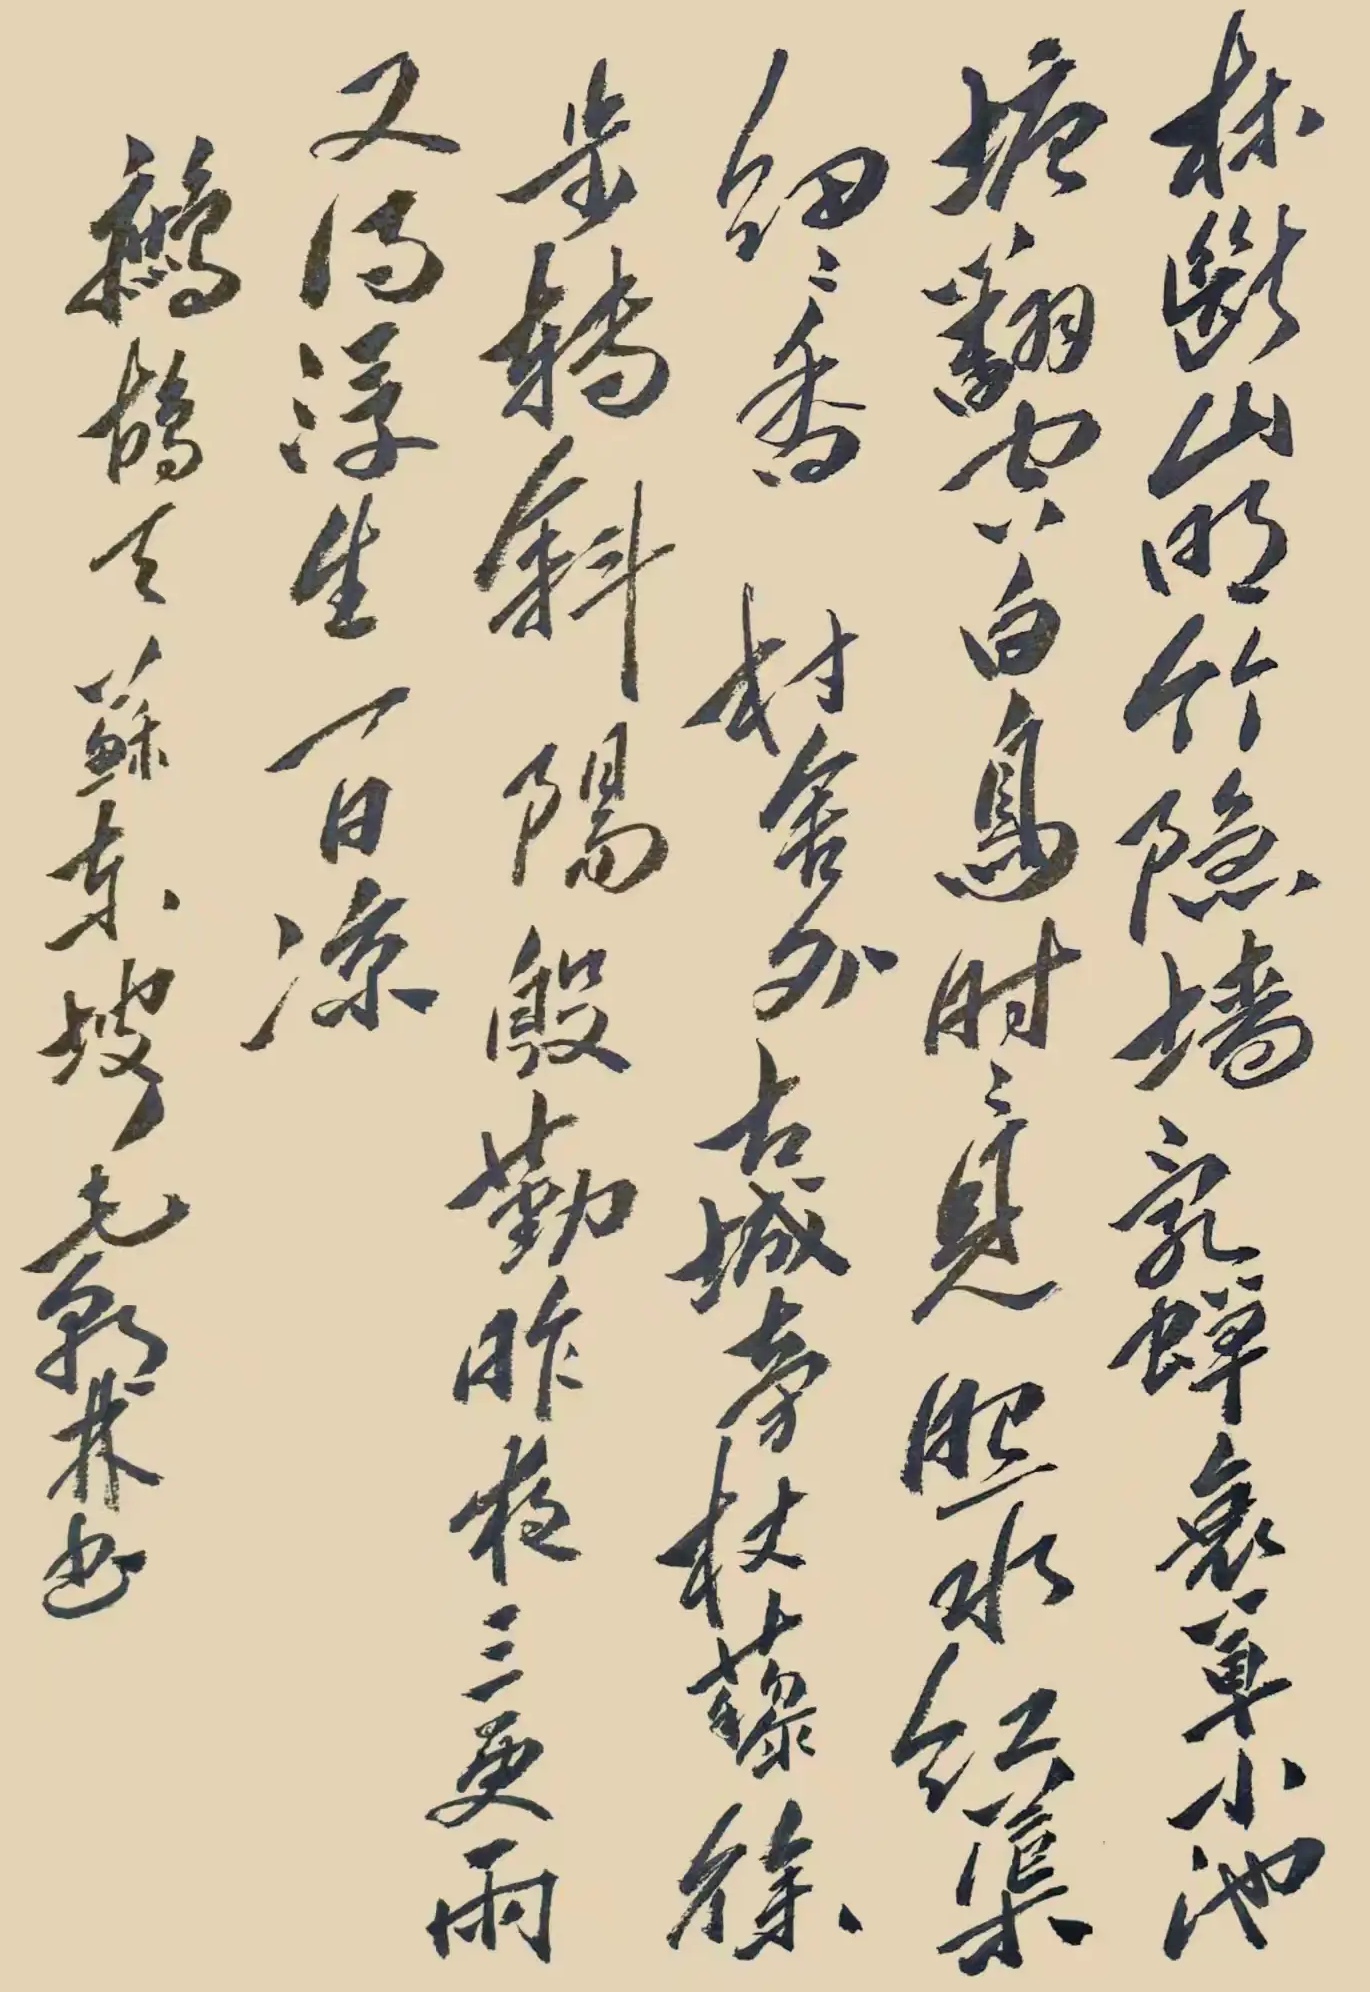 林断山明竹隐墙乱蝉衰草小池
塘翻空白鸟时々见照水红蕖
细々香村舍外古城旁杖藜徐
步转斜阳殷勤昨夜三更雨
又得浮生一日凉
鹧鸪天苏东坡毛彰林书